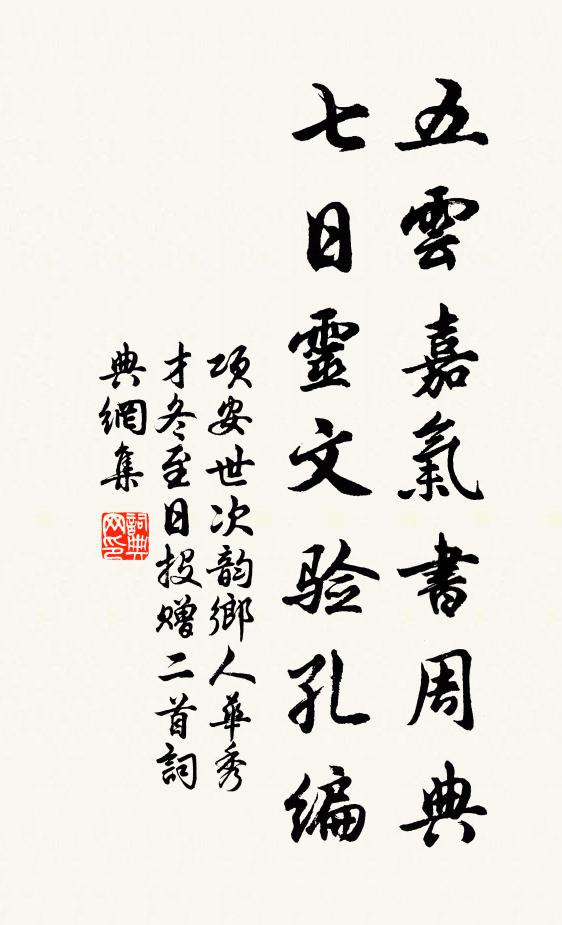 五雲嘉氣書周典
七日靈文验孔编
項安世次韵鄉人華秀
才冬至日投贈二首詞
典網集
詞典網印